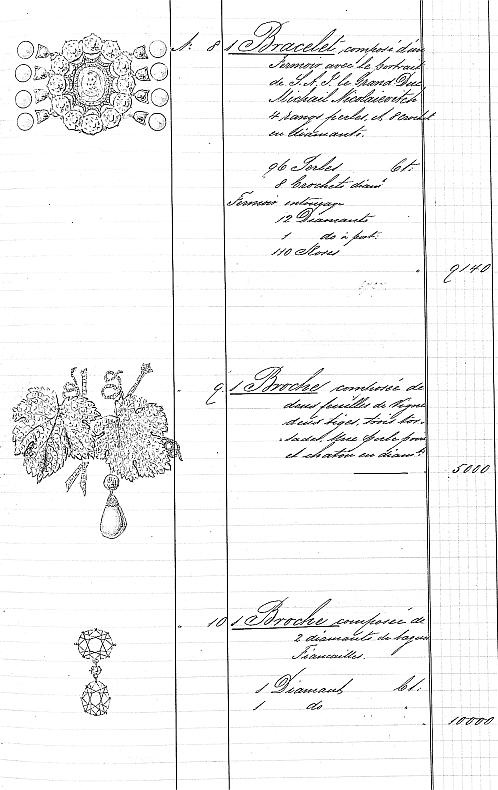 N. 8 1 Bracelet composé d'un
Fermoir avec le portrait
de S. A. I. le Grand Duc
Michail Nicolaievitch
4 rangs perles, et 8 crochet
en diamants.
96 Perles Ct:
8 Crochets diamt
Fermoir entourage
12 Diamants
1 do à port.
110 Roses
" 9140
" 9. 1 Broche composée de
deux feuilles de Vigne
deux tiges, trois tor-
sades, une perle poire
et chaton en diamts.
" 5000
" 10 1 Broche composée de
2 diamants de bagues
Fiancailles.
1 Diamant Ct:
1 do "
" 10000